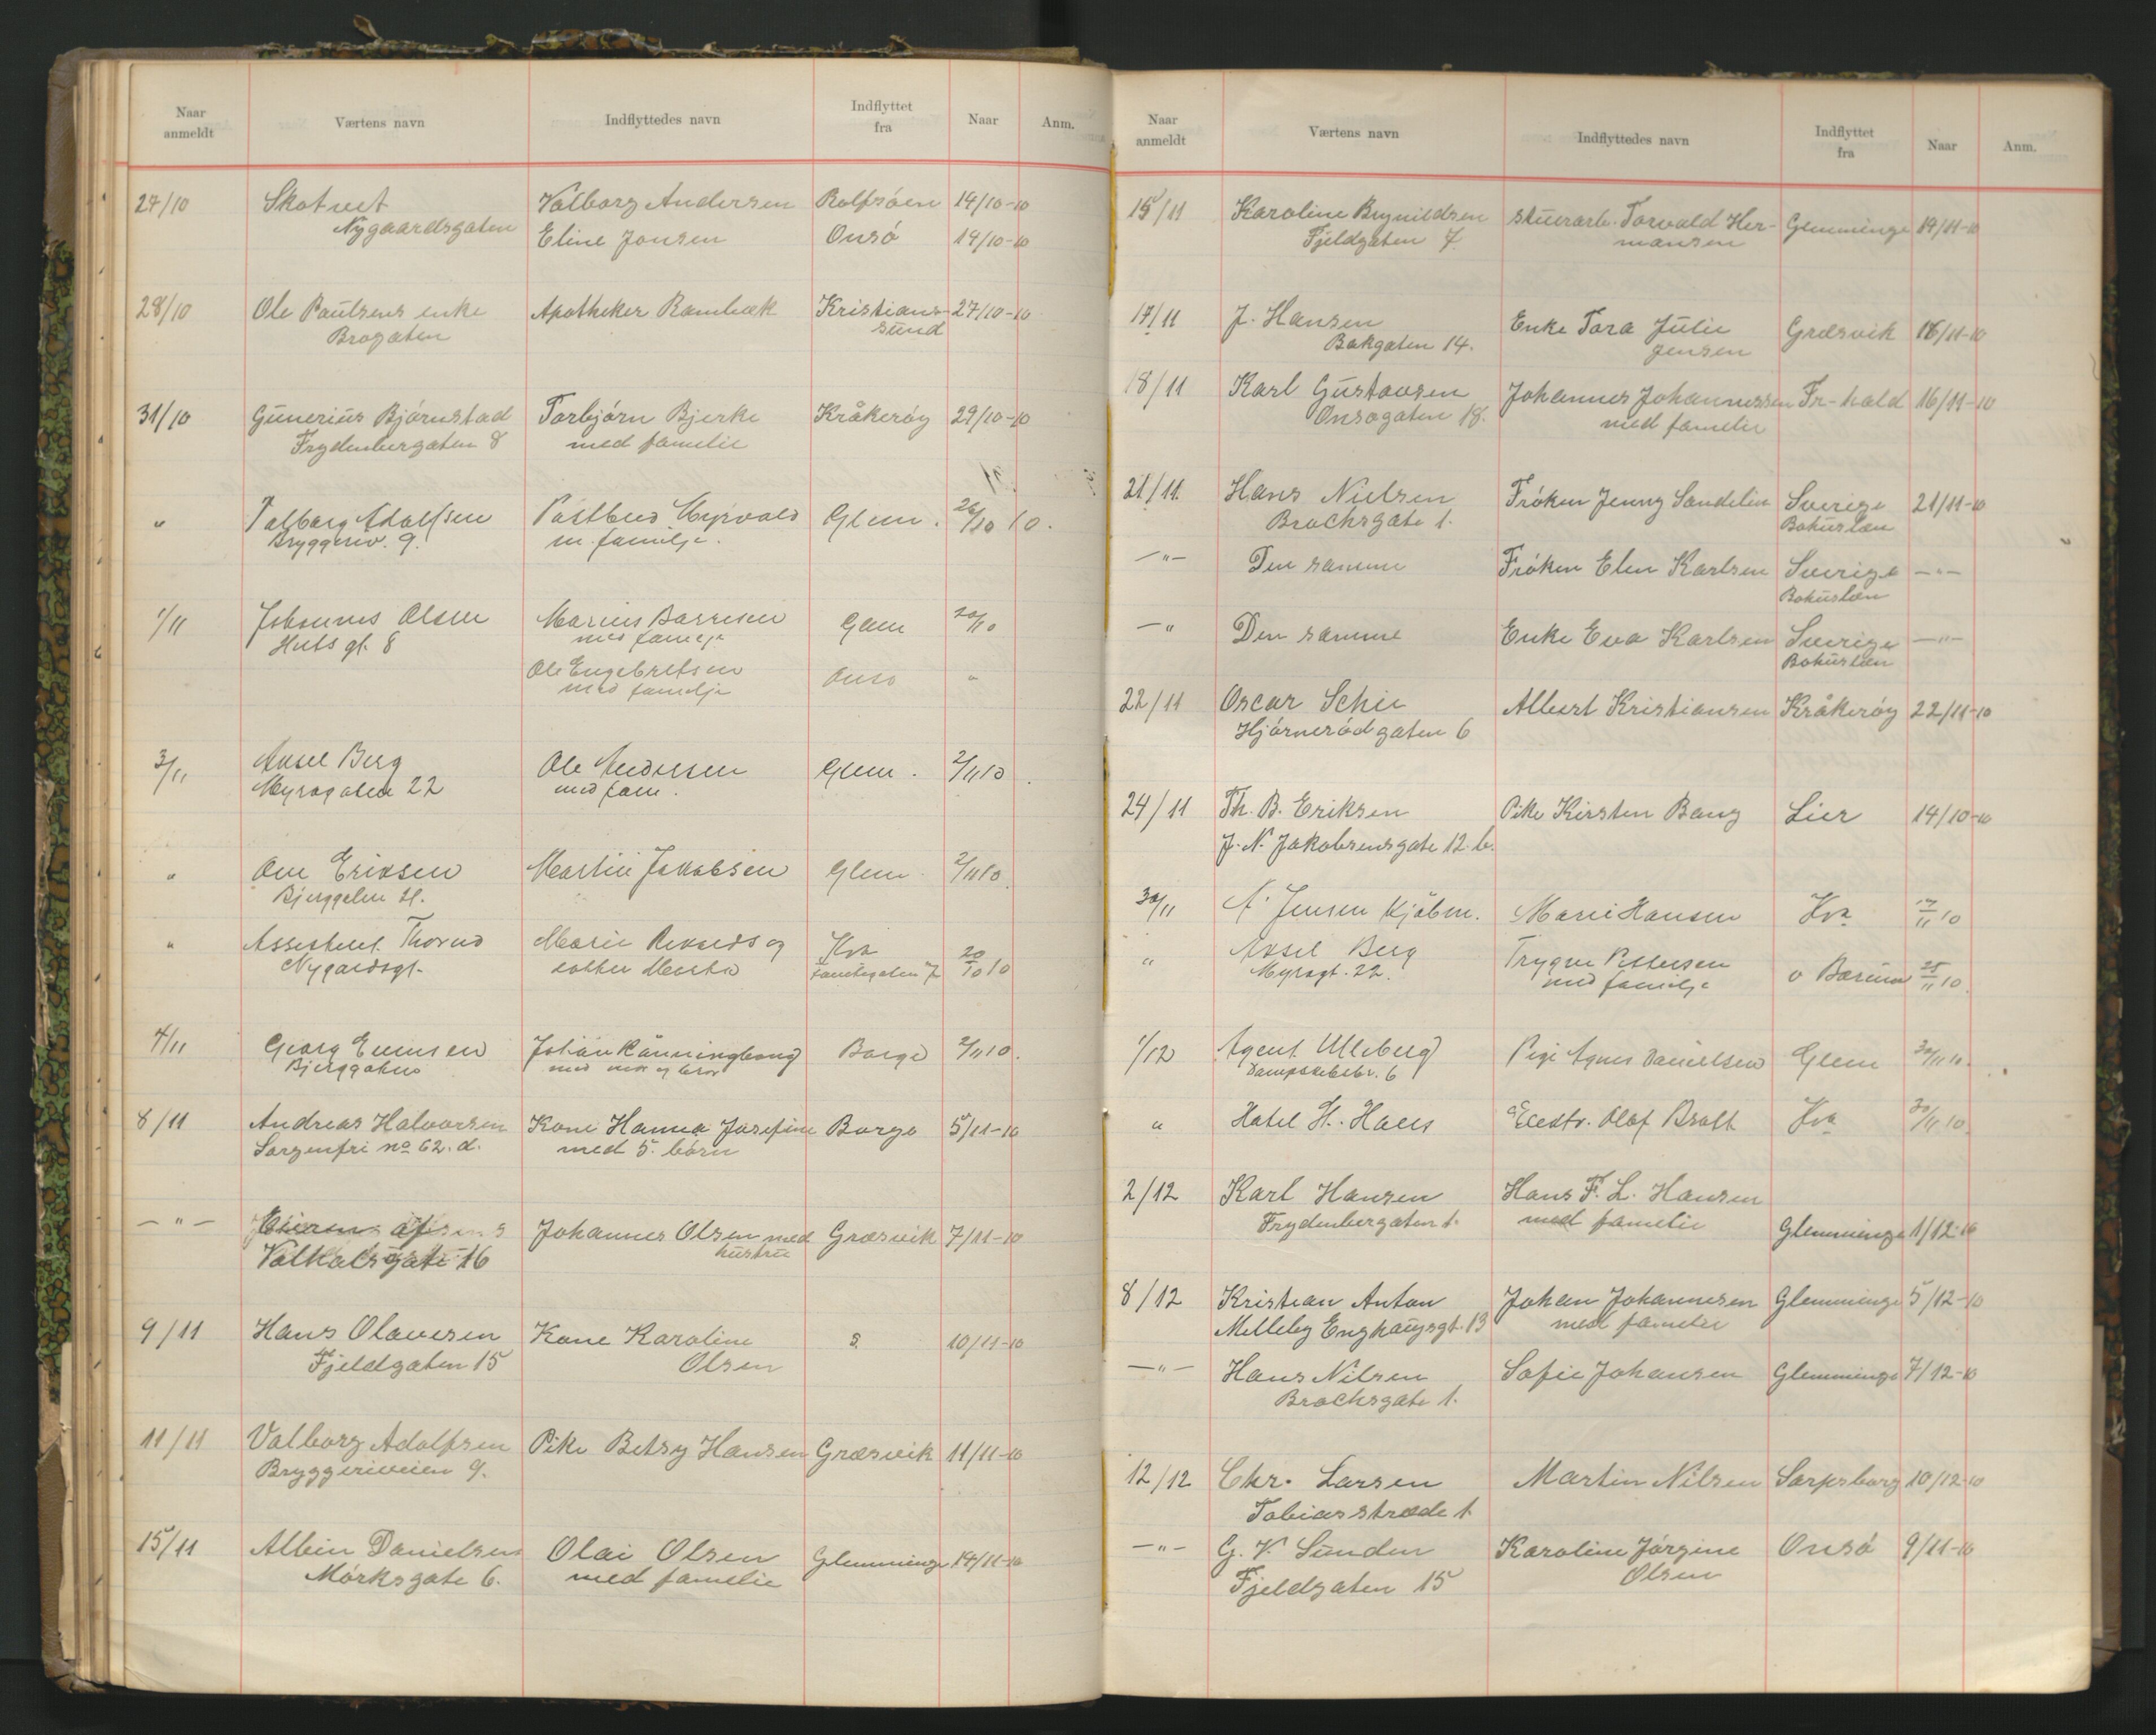 Naar anmeldt Værtens navn Indflyttedes navn Indflyttet fra Naar Anm.
27/10 Skotvet Valborg Andersen Rolfsöen 14/10-10
Nygaardsgaten Eline Jonsen Onsö 14/10-10
28/10 Ole Paulsens enke Apotheker Rambæk Kristians- 27/10-10
Brogaten sund
31/10 Gunerius Björnstad Torbjörn Bjerke Kråkeröy 29/10-10
Frydenbergaten 8 med familie
" Valborg Adolfsen Postbud Myrvold Glem. 26/10 10.
Bryggeriv. 9. m. familje.
1/11 Johannes Olsen Marius Glem
gt. 8 med familje
Ole Engebretsen Onso "
med familje
3/11 Aksel Berg Ole Andersen Glem. 2/11 10
Myragaten 22 med fam.
" Eriksen Martin Jakobsen Glem 2/11 10
" Assistent Thorud Marie og Kra 20/10 10
Nygardsgt.
4/11 Georg Johan Borge 2/11 10.
med mor og bror
8/11 Andreas Halvorsen Kone Hanna Josefine Borge 5/11-10
Sorgenfri no 62. d. med 5. börn
—"— Johannes Olsen med Græsvik 7/11-10
16 hustru
9/11 Hans Olavesen Kone Karoline 10/11-10
Fjeldgaten 15 Olsen
11/11 Valborg Adolfsen Pike Betsy Hansen Græsvik 11/11-10
Bryggeriveien 9.
15/11 Albin Danielsen Olai Olsen Glemminge 14/11-10
Mörksgate 6. med familie
Naar anmeldt Værtens navn Indflyttedes navn Indflyttet fra Naar Anm.
15/11 Karoline Brynildsen stuerarb. Torvald Her- Glemminge 19/11-10
Fjeldgaten 7. mansen
17/11 J. Hansen Enke Tora Julie Græsvik 16/11-10
Bakgaten 14. Jensen
18/11 Karl Gustavsen Johannes Johannessen Fr-hald 16/11-10
Onsøgaten 18. med familie
21/11. Hans Nielsen Fröken Jenny Sandelin Sverige 21/11-10
Brochsgate 1. Bohuslæn
—"— Den samme Fröken Elen Karlsen Sverige —"—
Bohuslæn
—" Den samme Enke Eva Karlsen Sverige —"—
Bohuslæn
22/11 Oscar Schie Albert Kristiansen Kråkeröy 22/11-10
Hjörnerödgaten 6
24/11 Th. B. Eriksen Pike Kirsten Bang Lier 14/10-10
J. N. Jakobsensgate 12. b.
30/11 A. Jensen Kjöbm. Marie Hansen Kra 11 10
" Aksel Berg Trygve Pettersen v Bærum 25/11 10
Myragt. 22. med familje
1/12 Agent Ulleberg Pige Agnes Danielsen Glem 30/11 10.
Dampskibsbr. 6
" Hotel St. Hans Olaf Bratt Kra 30/11 10.
2/12 Karl Hansen Hans F. L. Hansen
Frydenbergaten 1. med familie Glemminge 1/12-10
8/12 Kristian Anton Johan Johannesen Glemminge 5/12-10
Melleby Enghaugsgt. 13 med familie
—"— Hans Nilsen Sofie Johansen Glemminge 7/12-10
Brochsgate 1.
12/12 Chr. Larsen Martin Nilsen Sarpsborg 10/12-10
Tobiasstræde 1
—"— G. V. Sunden Karoline Jörgine Onsö 9/11-10
Fjeldgaten 15 Olsen